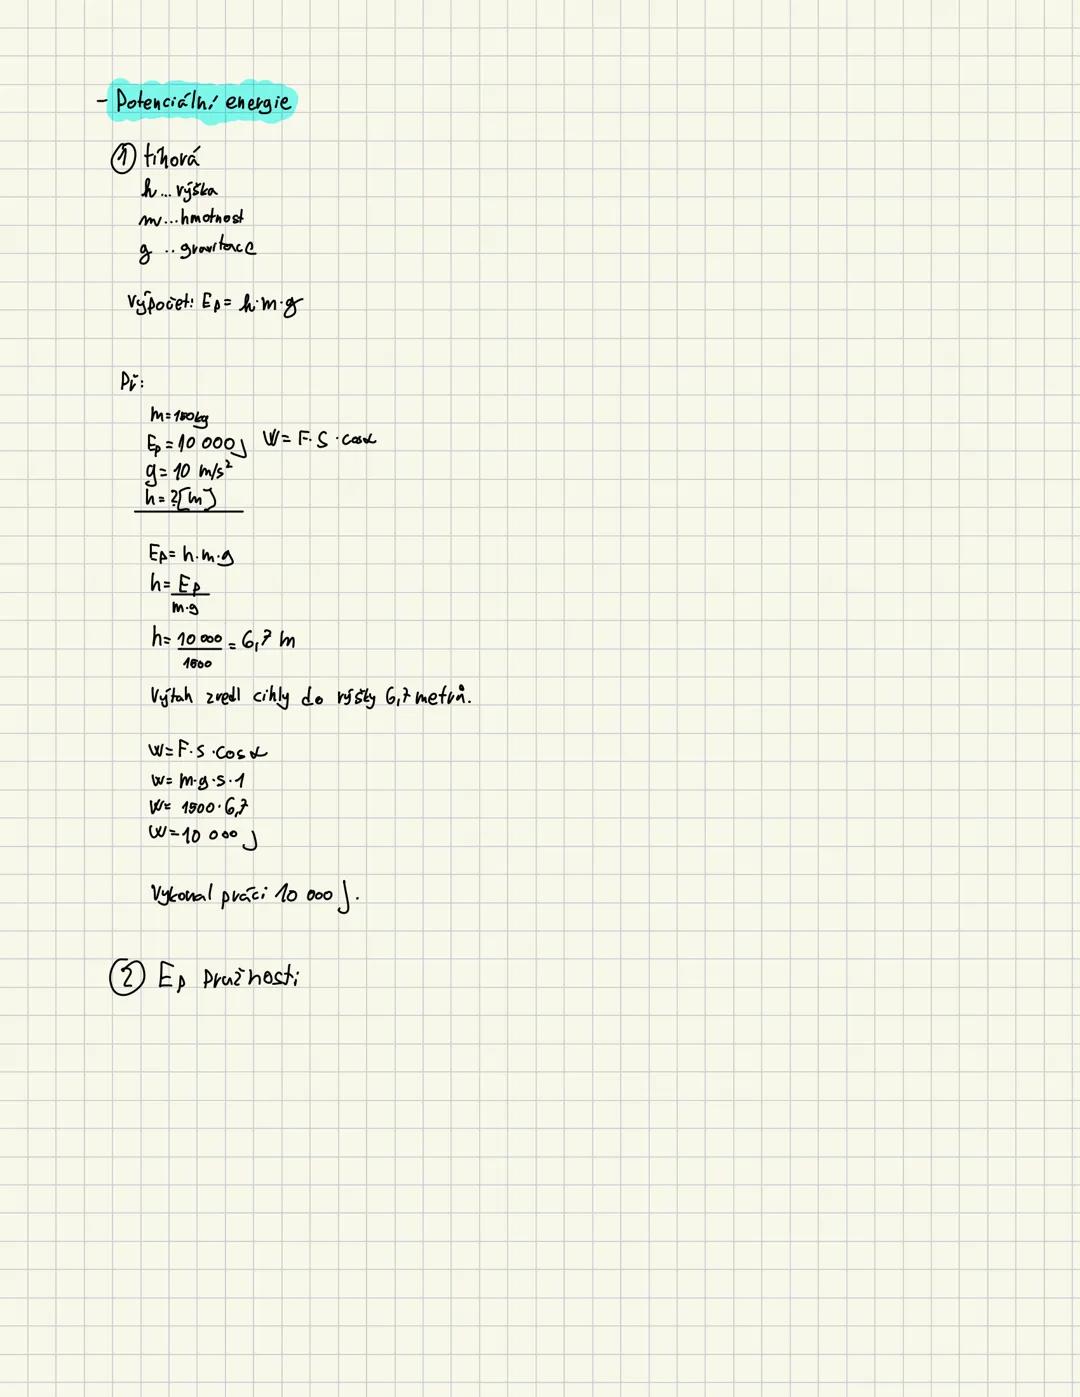 - Potenciální energie
① tíhová
h... výška
m... hmotnost
g .. gravitace
Výpočet: Ep = h·m·g
Př:
m = 150kg
Ep = 10 000 J W = F·S·cosα
g = 10 m/s²
h = ? [m]
Ep = h·m·g
h = Ep
m·g
h = 10 000 = 6,7 m
1500
Výtah zvedl cihly do výšky 6,7 metrů.
W = F·s·cosα
W = m·g·s·1
W = 1500·6,7
W = 10 000 J
Vykonal práci 10 000 J.
② Ep pružnosti